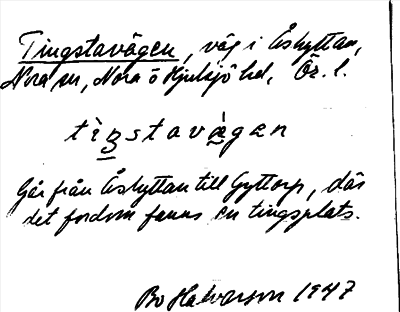 Tingstavägen, väg i Åshyttan,
Nora sn, Nora o Hjulsjö hd, Ör. l.
tìŋstavä̀gen
Går från Åshyttan till Gyttorp, där
det fordom fanns en tingsplats.
Bo Halvarson 1947